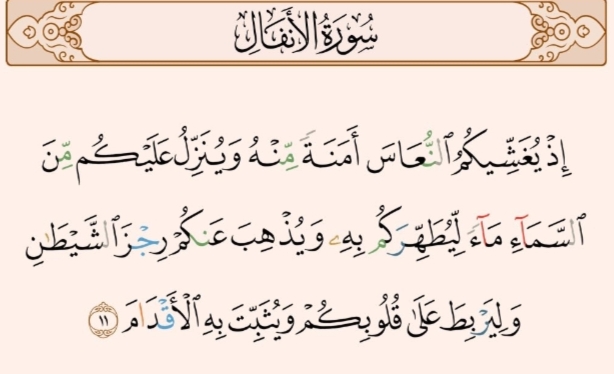 سُورَةُ الأَنفَالِ
إِذْ يُغَشِّيكُمُ ٱلنُّعَاسَ أَمَنَةً مِّنْهُ وَيُنَزِّلُ عَلَيْكُم مِّنَ
ٱلسَّمَآءِ مَآءً لِّيُطَهِّرَكُم بِهِۦ وَيُذْهِبَ عَنكُمْ رِجْزَ ٱلشَّيْطَٰنِ
وَلِيَرْبِطَ عَلَىٰ قُلُوبِكُمْ وَيُثَبِّتَ بِهِ ٱلْأَقْدَامَ ١١